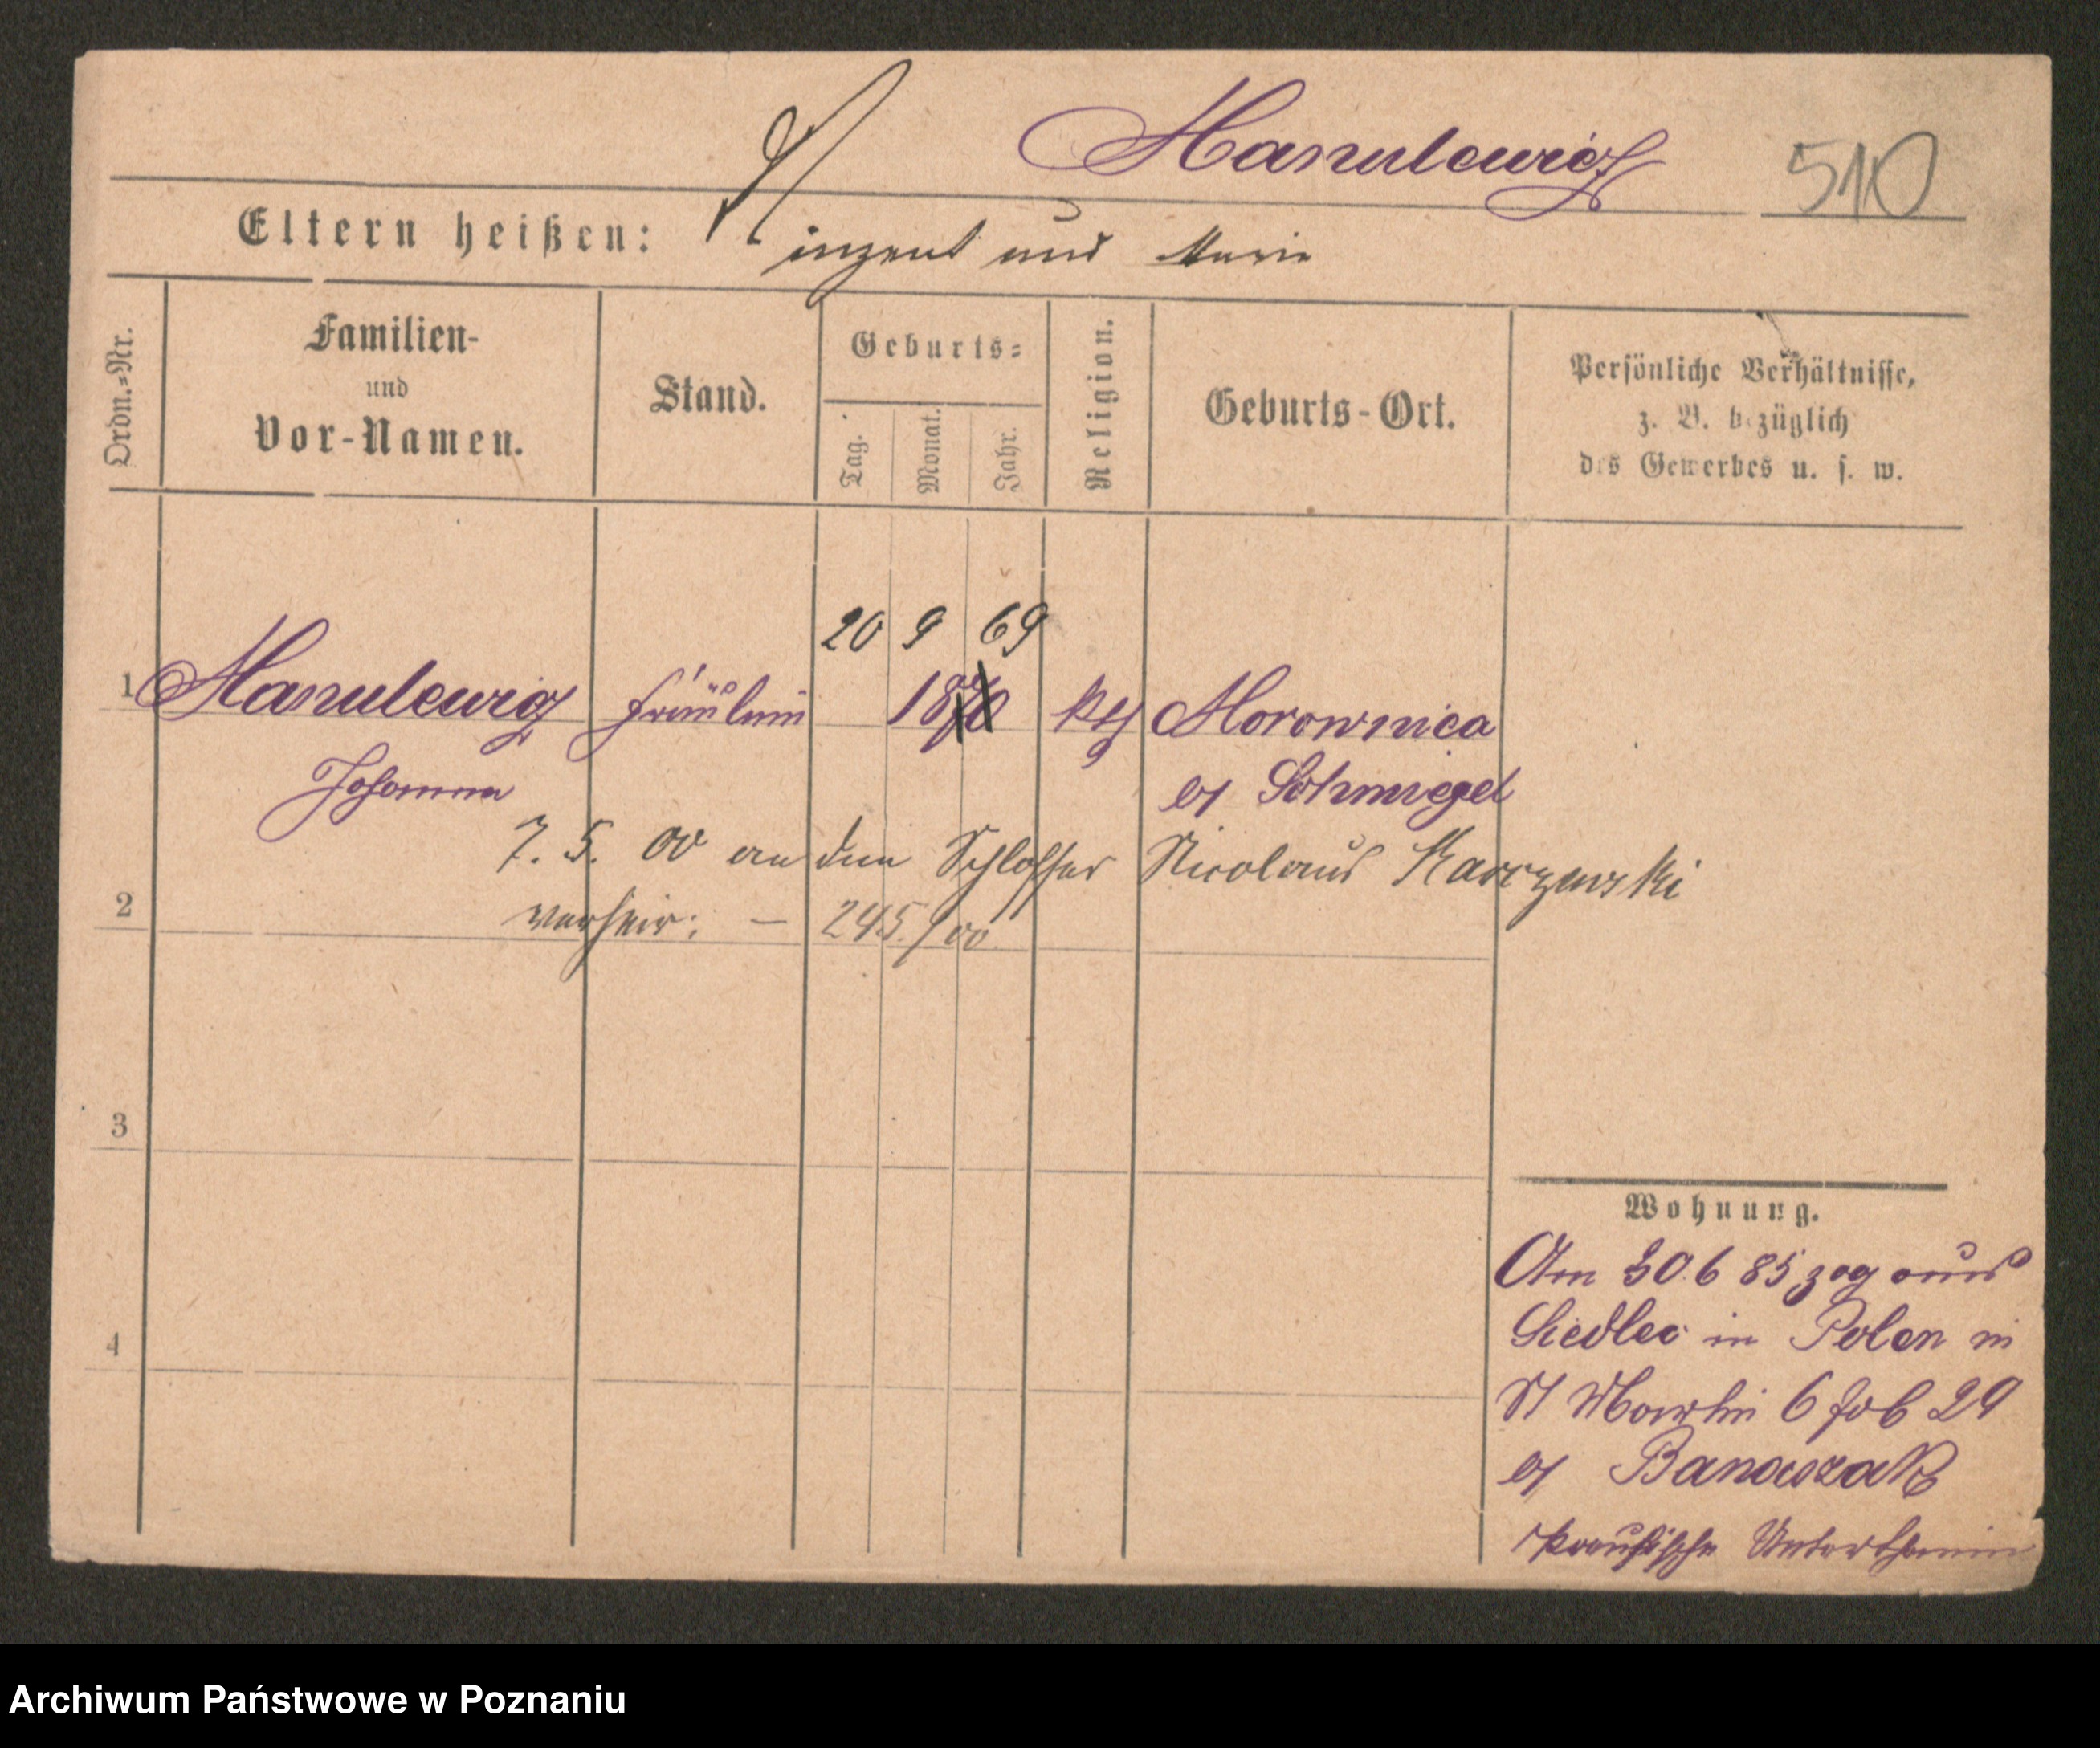 Hanulewicz 510
Eltern heißen: Vinzent und Marie
Ordn.=Nr.
Familien-
und
Vor-Namen.
Stand.
Geburts=
Tag.
Monat.
Jahr.
Religion.
Geburts-Ort.
Persönliche Verhältnisse,
z. B. bezüglich
des Gewerbes u. s. w.
20 9 69
1 Hanulewicz Fräulein 1870 kth Morownica
Johanna Schmiegel
7. 5. 00 an den Schlosser Nicolaus Karczewski
2 verheir: – 245/00
3
4
Wohnung.
Am 30.6 85 zog aus
Siedlec in Polen in
St Martin 6 Job 29
Banaszak
Preußische Unterthanin
Archiwum Państwowe w Poznaniu